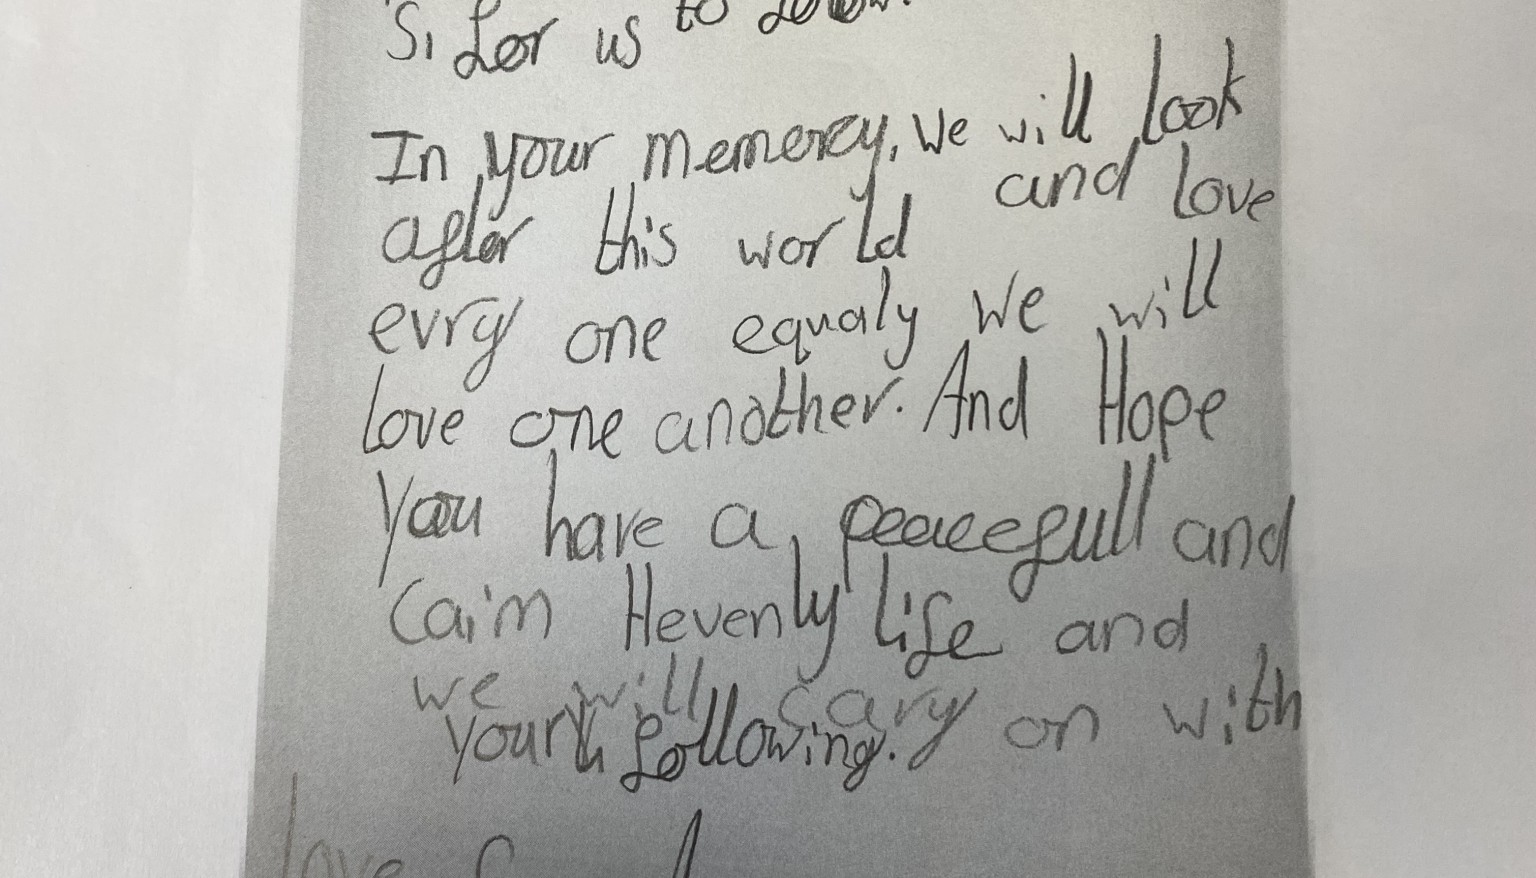 for us to
In your memerey, we will look
after this world and love
evry one equaly we will
love one another. And Hope
you have a peacefull and
Caim Hevenly life and
we will cary on with
your following.
love